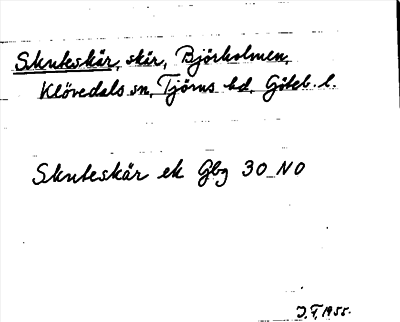 Skuteskär, skär, Björholmen,
Klövedals sn, Tjörns hd, Göteb. l.
Skuteskär ek Gbg 30 NO
J.T. 1955.